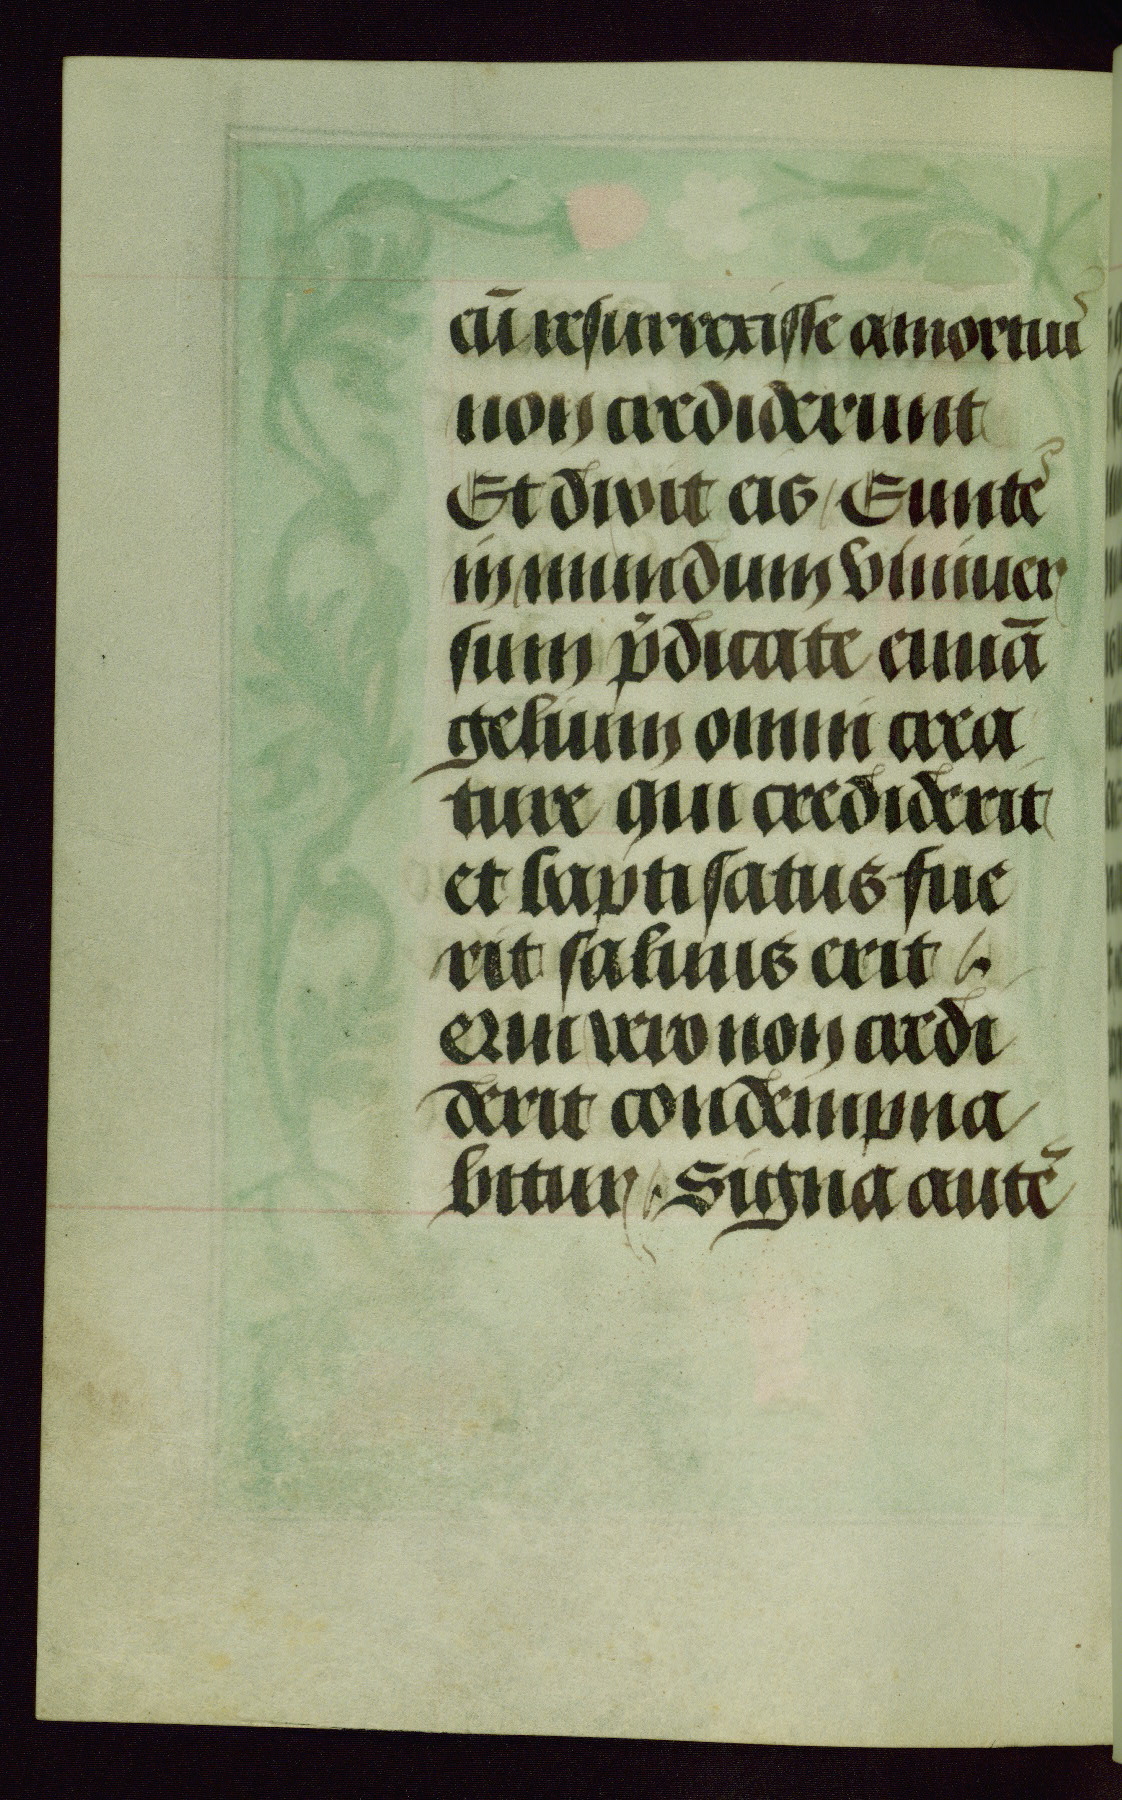 eū resurrexisse a mortuis
non crediderunt
Et dixit eis / Euntes
in mundum vniuer
sum p̄dicate euuā
gelium omni crea
ture qui crediderit
et baptisatus fue
rit saluus erit /.
Qui vero non credi
derit condempna
bitur /. Signa autē